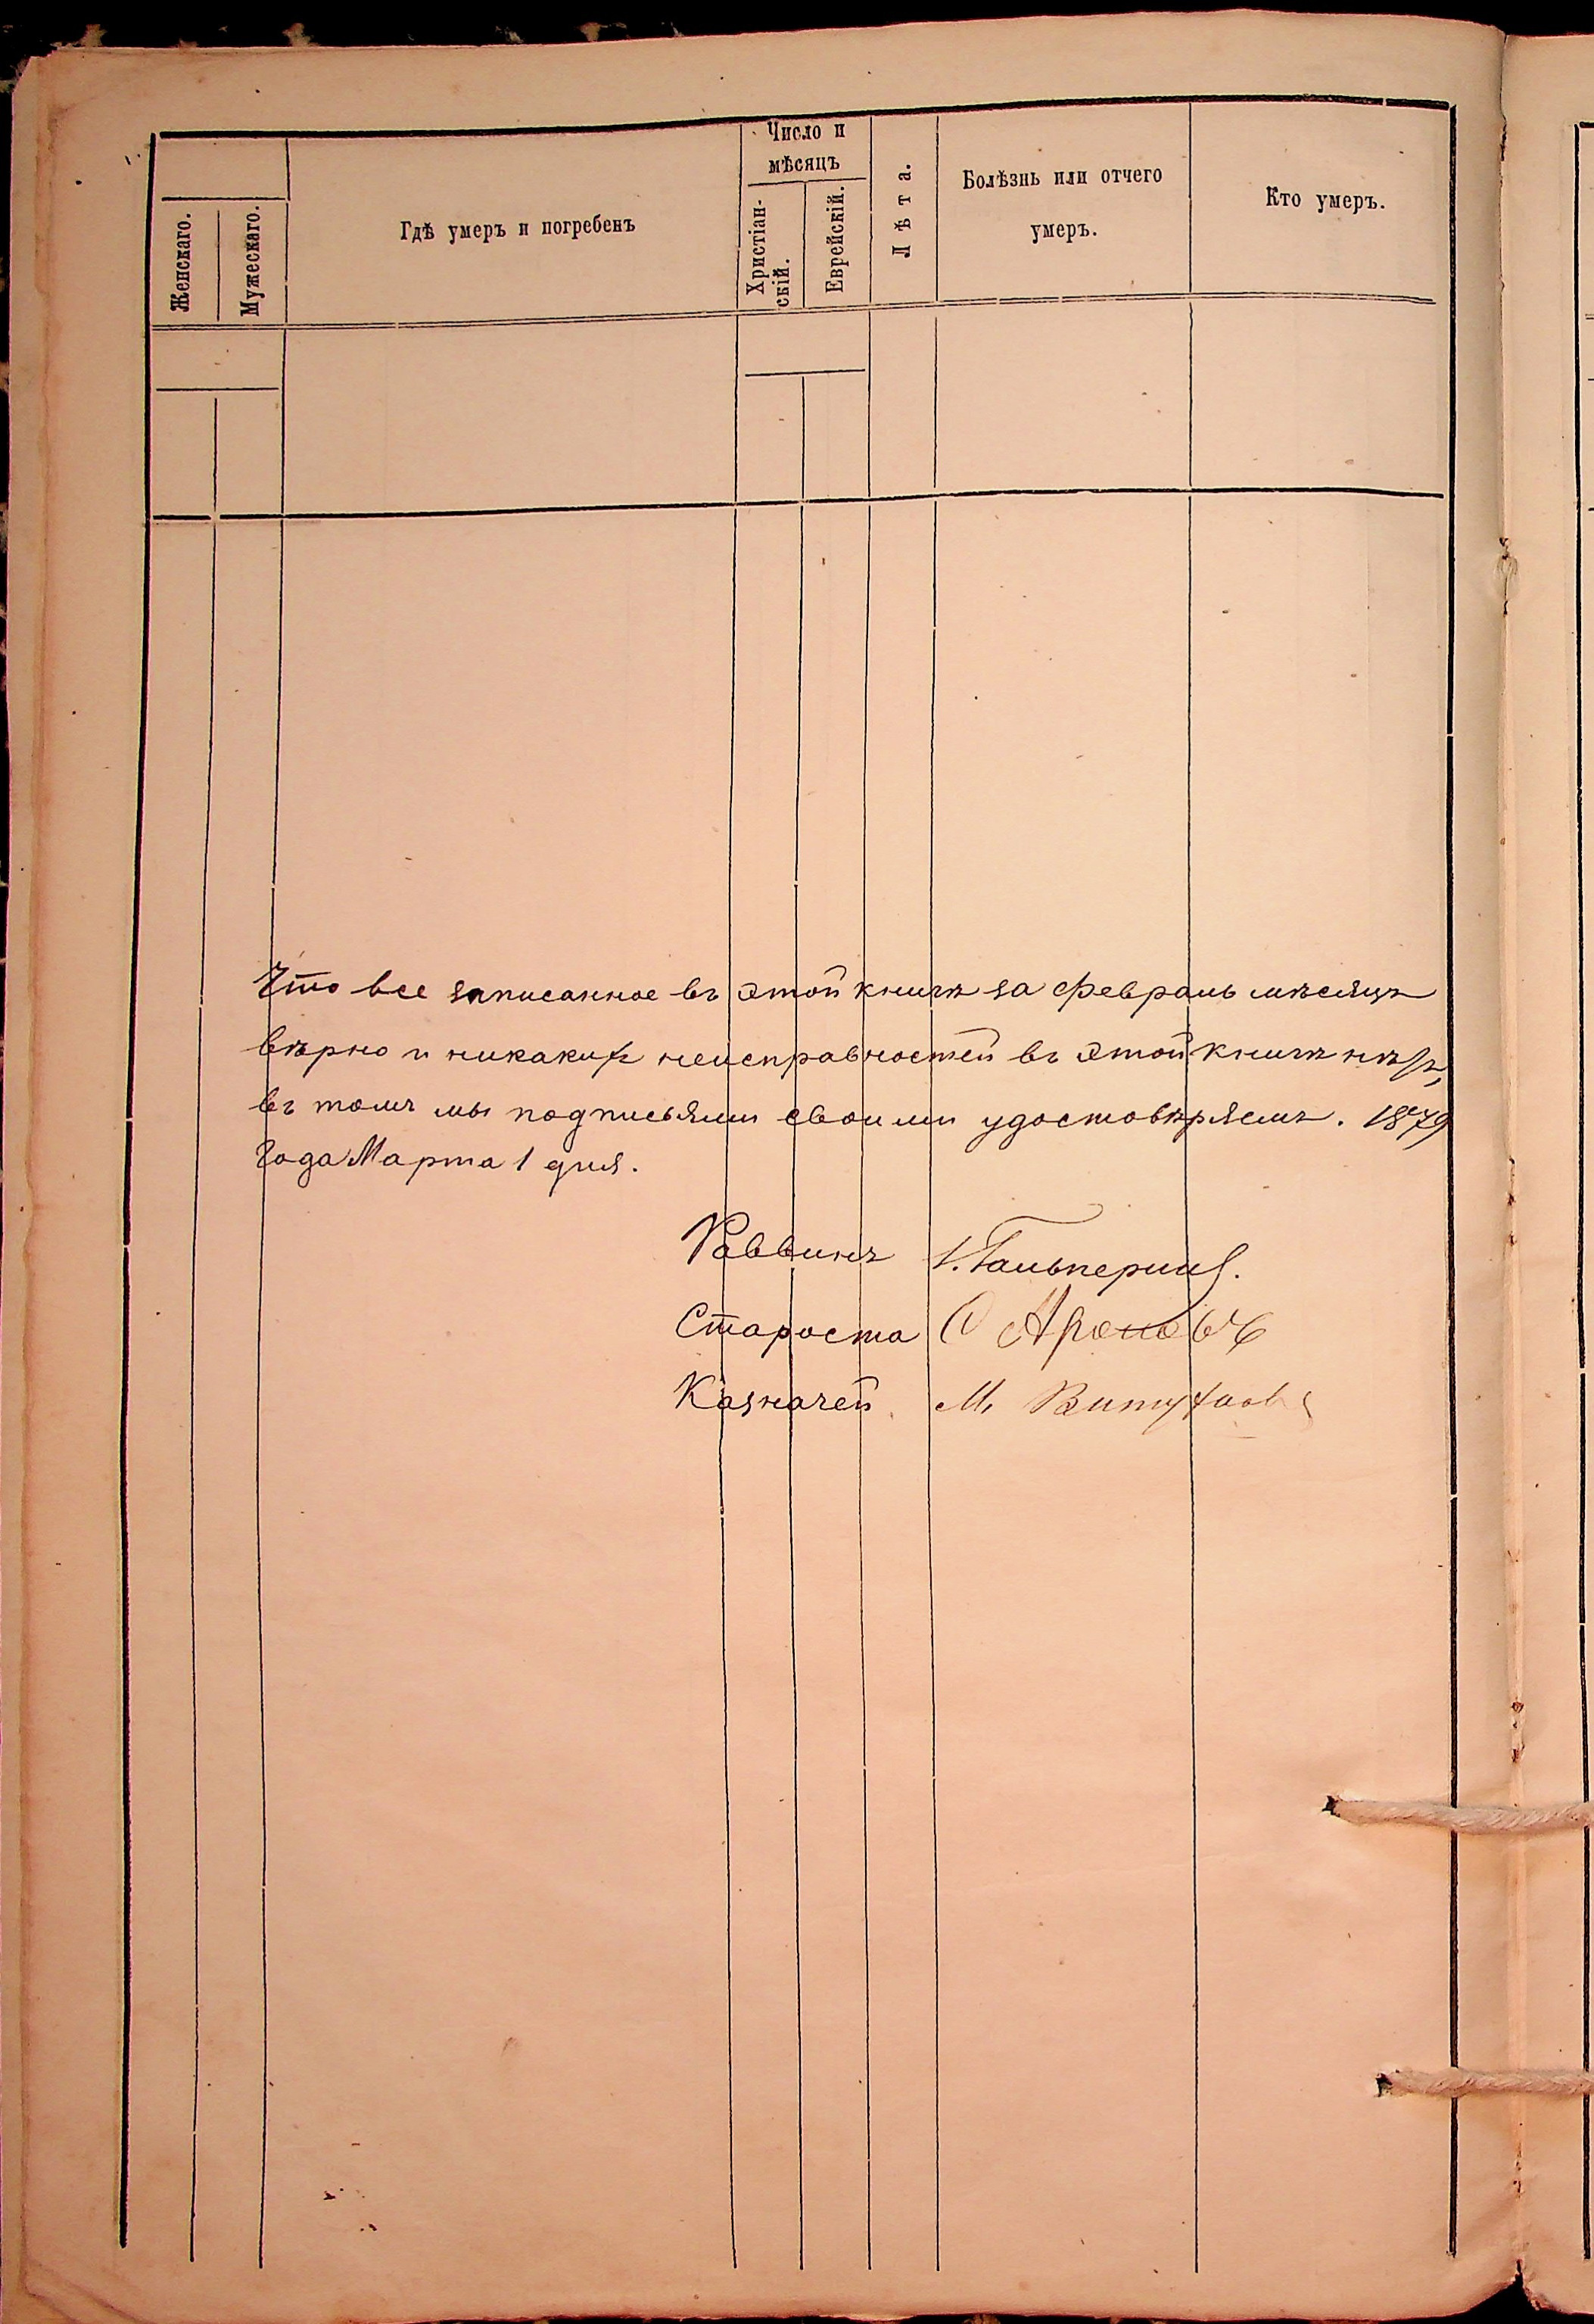 Женскаго.
Мужескаго.
Гдѣ умеръ и погребенъ
Число и
мѣсяцъ
Христіан-
скій.
Еврейскій.
Лѣта.
Болѣзнь или отчего
умеръ.
Кто умеръ.
Что все записанное въ этой книгѣ за февраль мѣсяцъ
вѣрно и никакихъ неисправностей въ этой книгѣ нѣтъ,
въ томъ мы подписьями своими удостовѣряемъ. 1879
года Марта 1 дня.
Раввинъ Гальперинъ.
Староста Ароновъ
Казначей М.